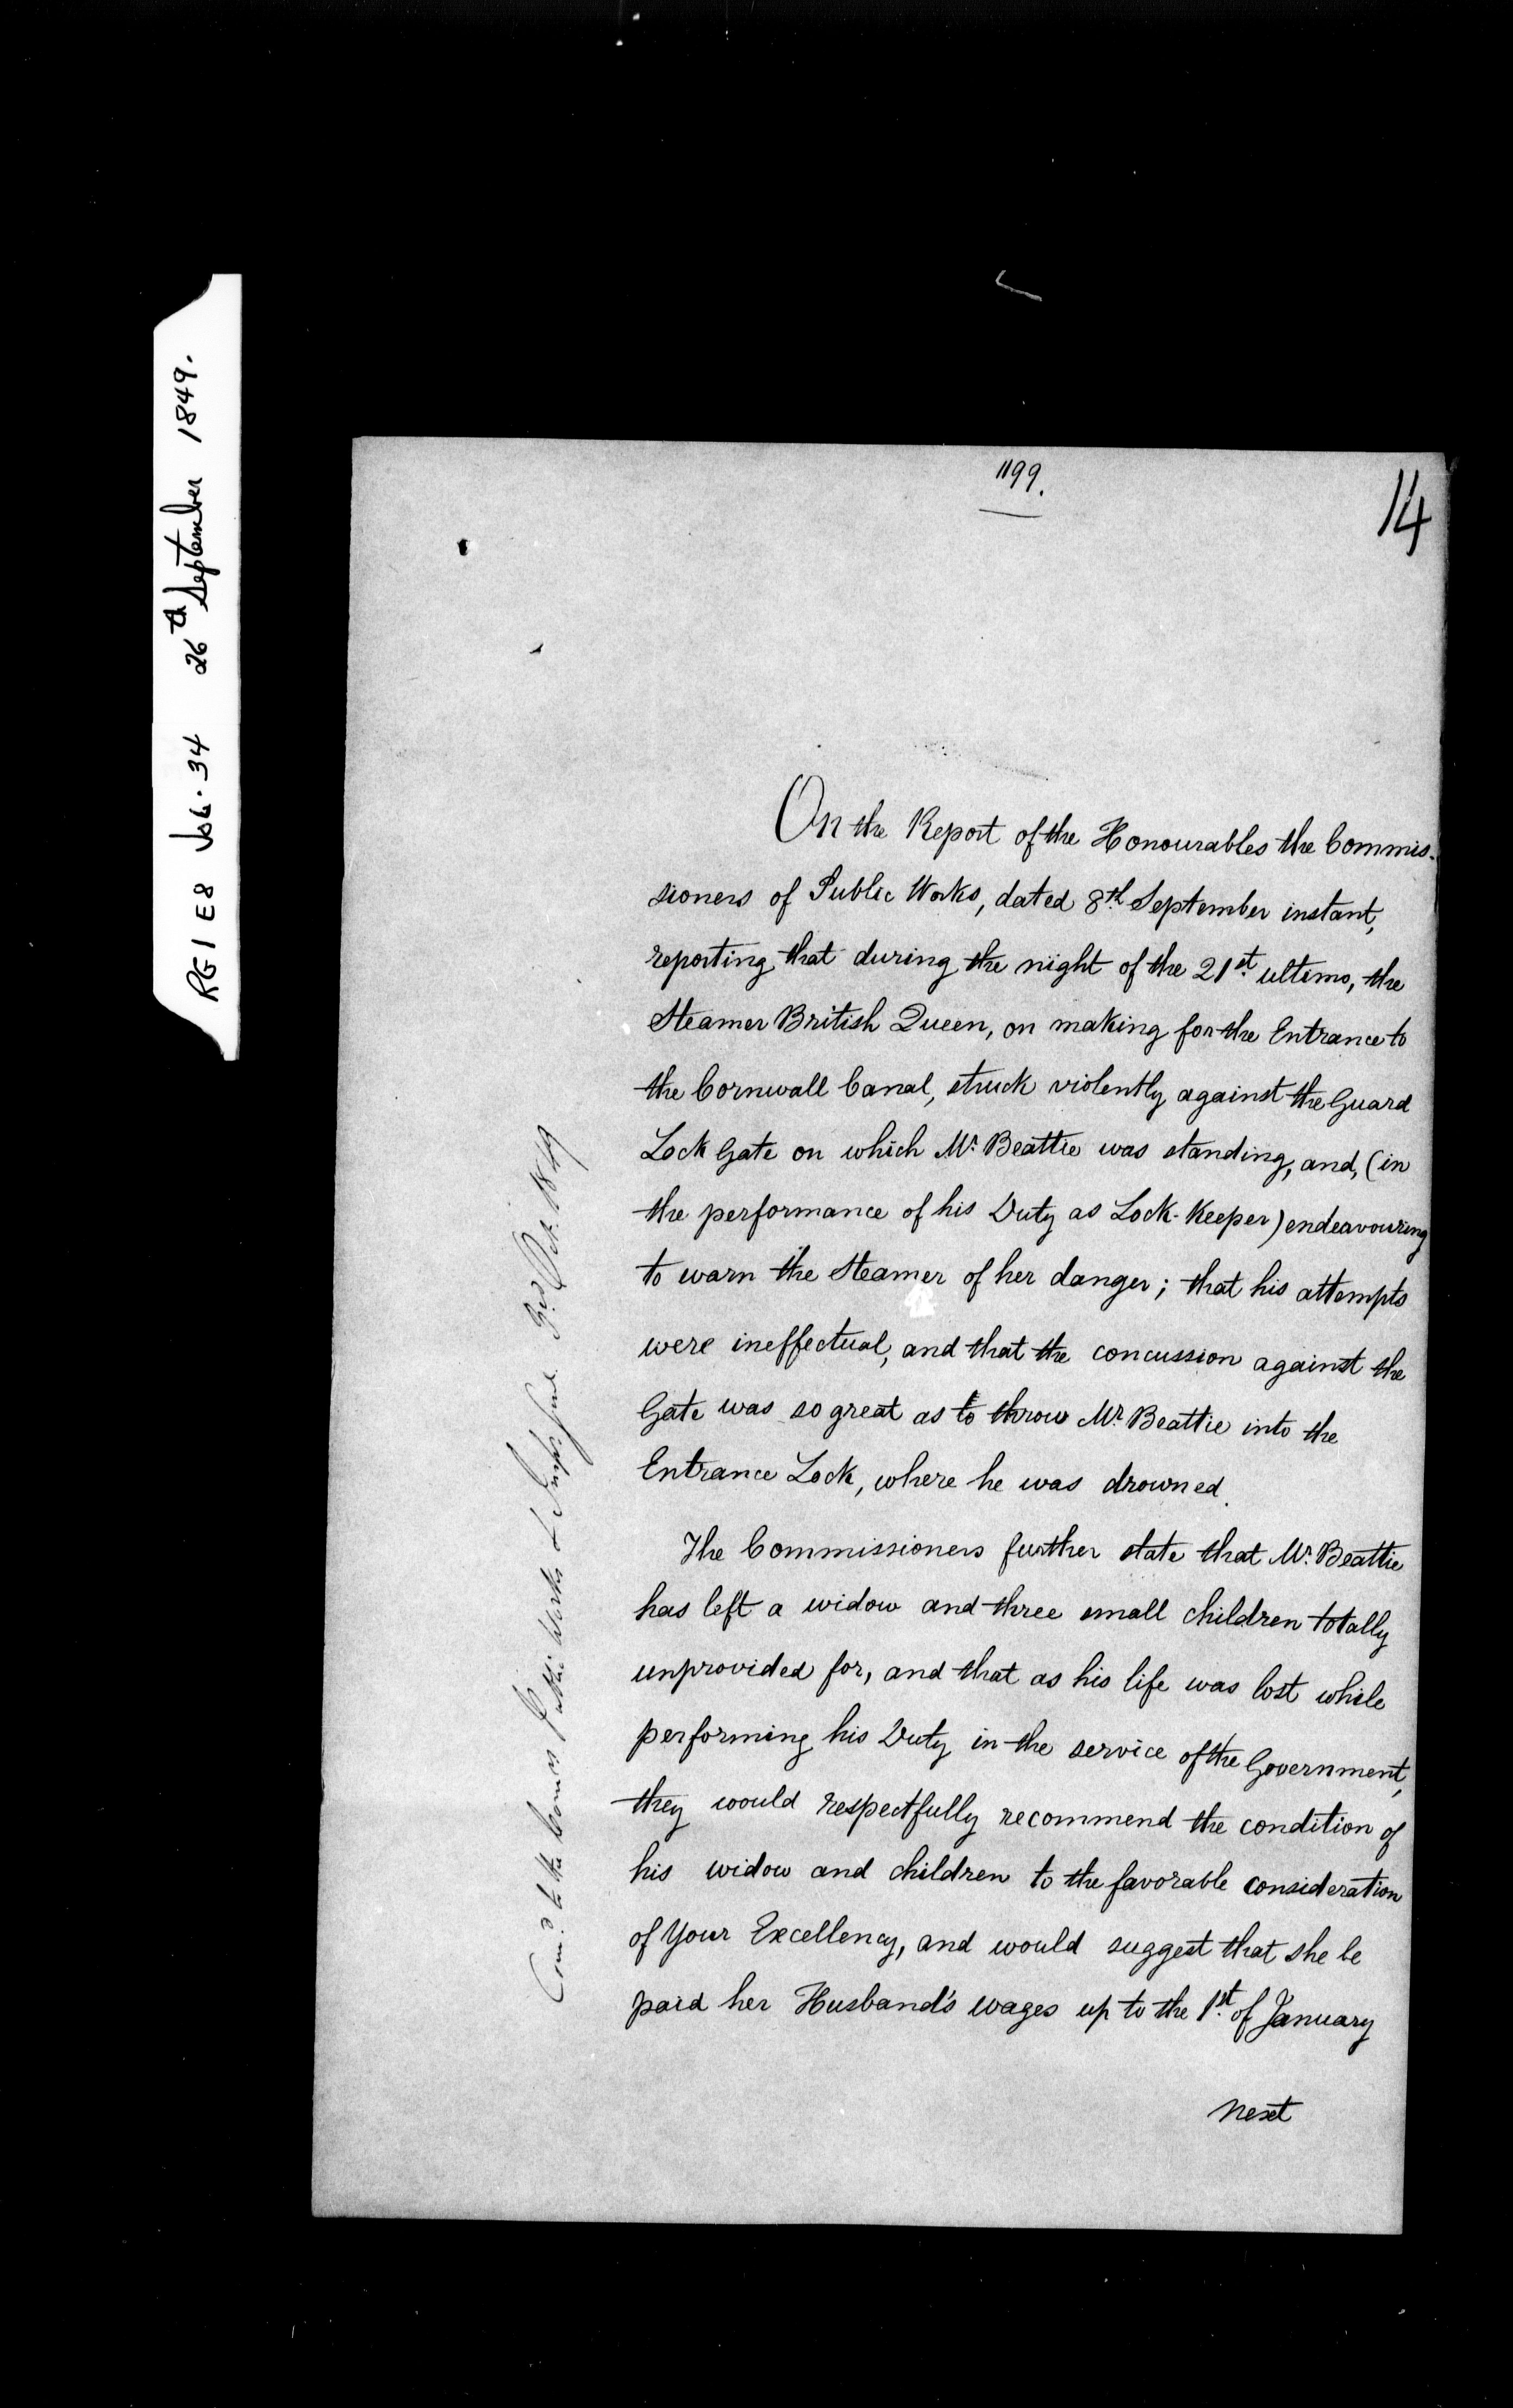 RG 1 E8 Vol. 34 26th September 1849.
1199.
14
On the Report of the Honourables the Commis-
sioners of Public Works, dated 8th September instant,
reporting that during the night of the 21st ultimo, the
Steamer British Queen, on making for the Entrance to
the Cornwall Canal, struck violently against the Guard
Lock Gate on which Mr. Beattie was standing, and, (in
the performance of his Duty as Lock-Keeper) endeavouring
to warn the Steamer of her danger; that his attempts
were ineffectual, and that the concussion against the
Gate was so great as to throw Mr. Beattie into the
Entrance Lock, where he was drowned.
The Commissioners further state that Mr. Beattie
has left a widow and three small children totally
unprovided for, and that as his life was lost while
performing his Duty in the service of the Government,
they would respectfully recommend the condition of
his widow and children to the favorable consideration
of Your Excellency, and would suggest that she be
paid her Husband's wages up to the 1st of January
next
Com.d to the Comrs Public Works & Insp. Genl. 3rd Oct. 1849